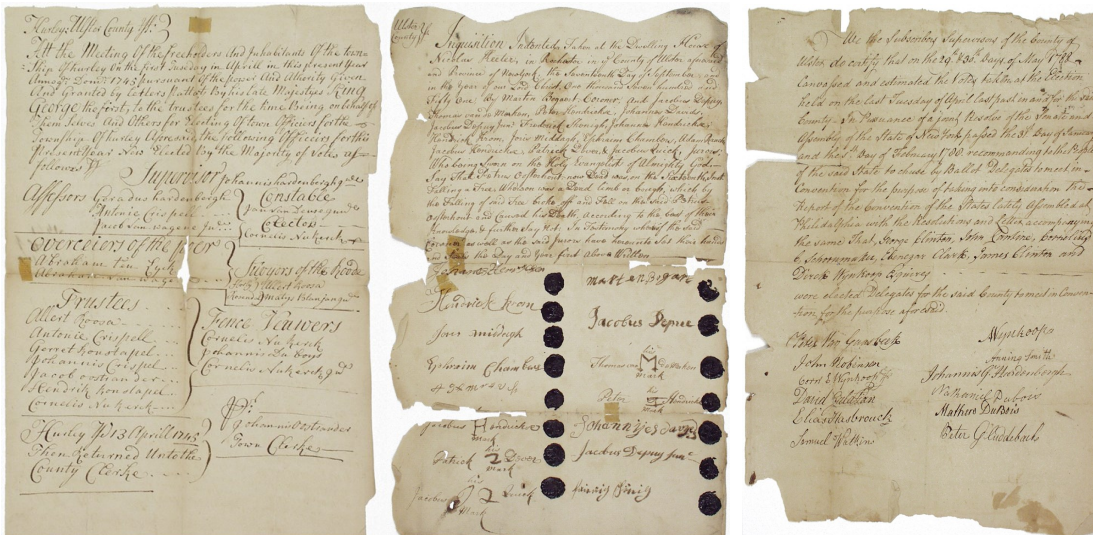 Hurley Ulster County ss:
Att the Meeting Of the freeholders And Inhabitants Of the town-
ship of hurley On the first tuesday in Aprill in this present year
Anno Dom: 1745 pursuant of the power And Athority Given
And Granted by Letters Pattent By his Late Majestys King
George the first, to the trustees for the time Being, on behalf of
themselves And Others for Electing of town Officers for the
Township of hurley Aforesaid the following Officers for this
present year Now Elected by the Majority of Votes as
follows
Supervisor Johannis hardenbergh
Assessors Geradus hardenbergh
Antonie Crispell
Jacob Van Wagene
Constable
Jan Van Deuse
Colector
Cornelis Nukerck
Overceiers of the poer
Abraham ten Eyck
Abraham Van Wage
Sirvyors of the Roade
Albert Roosa
Trustees
Albert Roosa
Antonie Crispell
Gerret Konstapel
Johannis Crispel
Jacob oostrander
Hendrik Konstapel
Cornelis Nukerck
Fence Veiwers
Cornelis Nukerck
Johannis Du Boys
Cornelis Nukerck
Pr:
Johannis oostrander
Town Clerke
Hurley 13 Aprill 1745
Then Returned Unto the
County Clercke
Ulster
County ss
Inquisition Indented, Taken at the Dwelling House of
Nicolas Keeter, in Rochester in County of Ulster aforesaid
and Province of Newyork, the Seventeenth Day of September
in the Year of our Lord Christ, One thousand Seven hundred and
Fifty One, By Marten Bogart Coroner, and Jacobus Depuy,
Thomas van De Marken, Peter Hendrickse, Johannes
Jacobus Depuy Junr Frederick Johannes Hendrickse
Hendrick Krom, Jone Ephraim Chambers, Adam
Jacobus Hendrickse, Patrick Jacobus Quick Jurors
Who being Sworn on the Holy Evangelist of Almighty God
Say That Petrus Oosterhout now Dead was, on the Sixteenth Inst
Felling a Tree, Whereon was a Dead limb or bough, which by
the Falling of said Tree broke off and Fell on the said Petrus
Oosterhout and Caused his Death, according to the best of their
Knowledge, & further Say Not. In Testimony whereof the said
Coroner as well as the said Jurors have hereunto Set their hands
and Seals the Day and Year first Above Written
Marten Bogart
Hendrick Krom
Jacobus Depue
Ephraim Chambers
Thomas van De Marken
mark
Peter his Hendrickse
mark
Jacobus H Hendrickse
mark
Patrick his
mark
Jacobus Depuy Junr
Jacobus his Quick
Mark
We the Subscribers Supervisors of the County of
Ulster do certify that on the 29th & 30th Days of May 1788
Canvassed and estimated the Votes taken at the Election
held on the last Tuesday of April last past in and for the said
County - In Pursuance of a joint Resolve of the Senate and
Assembly of the State of New York passed the 31st Day of January
and the 1st Day of February 1788 recommending to the People
of the said State to chuse by Ballot Delegates to meet in
Convention for the purpose of taking into consideration the
Report of the Convention of the States lately Assembled at
Philadelphia with the Resolutions and Letter accompanying
the same That George Clinton, John Cantine, Cornelius
C Schoonmaker, Ebenezer Clark, James Clinton and
Dirck Wynkoop Esquires
were elected Delegates for the said County to meet in Conven-
tion, for the purpose aforesaid
Wynkoop
John Robinson
Anning Smith
Corns E Wynkoop
Johannis G. Hardenbergh
David Galatian
Nathaniel Dubois
Elias Hasbrouck
Mathew DuBois
Samuel Watkins
Peter Gudebach